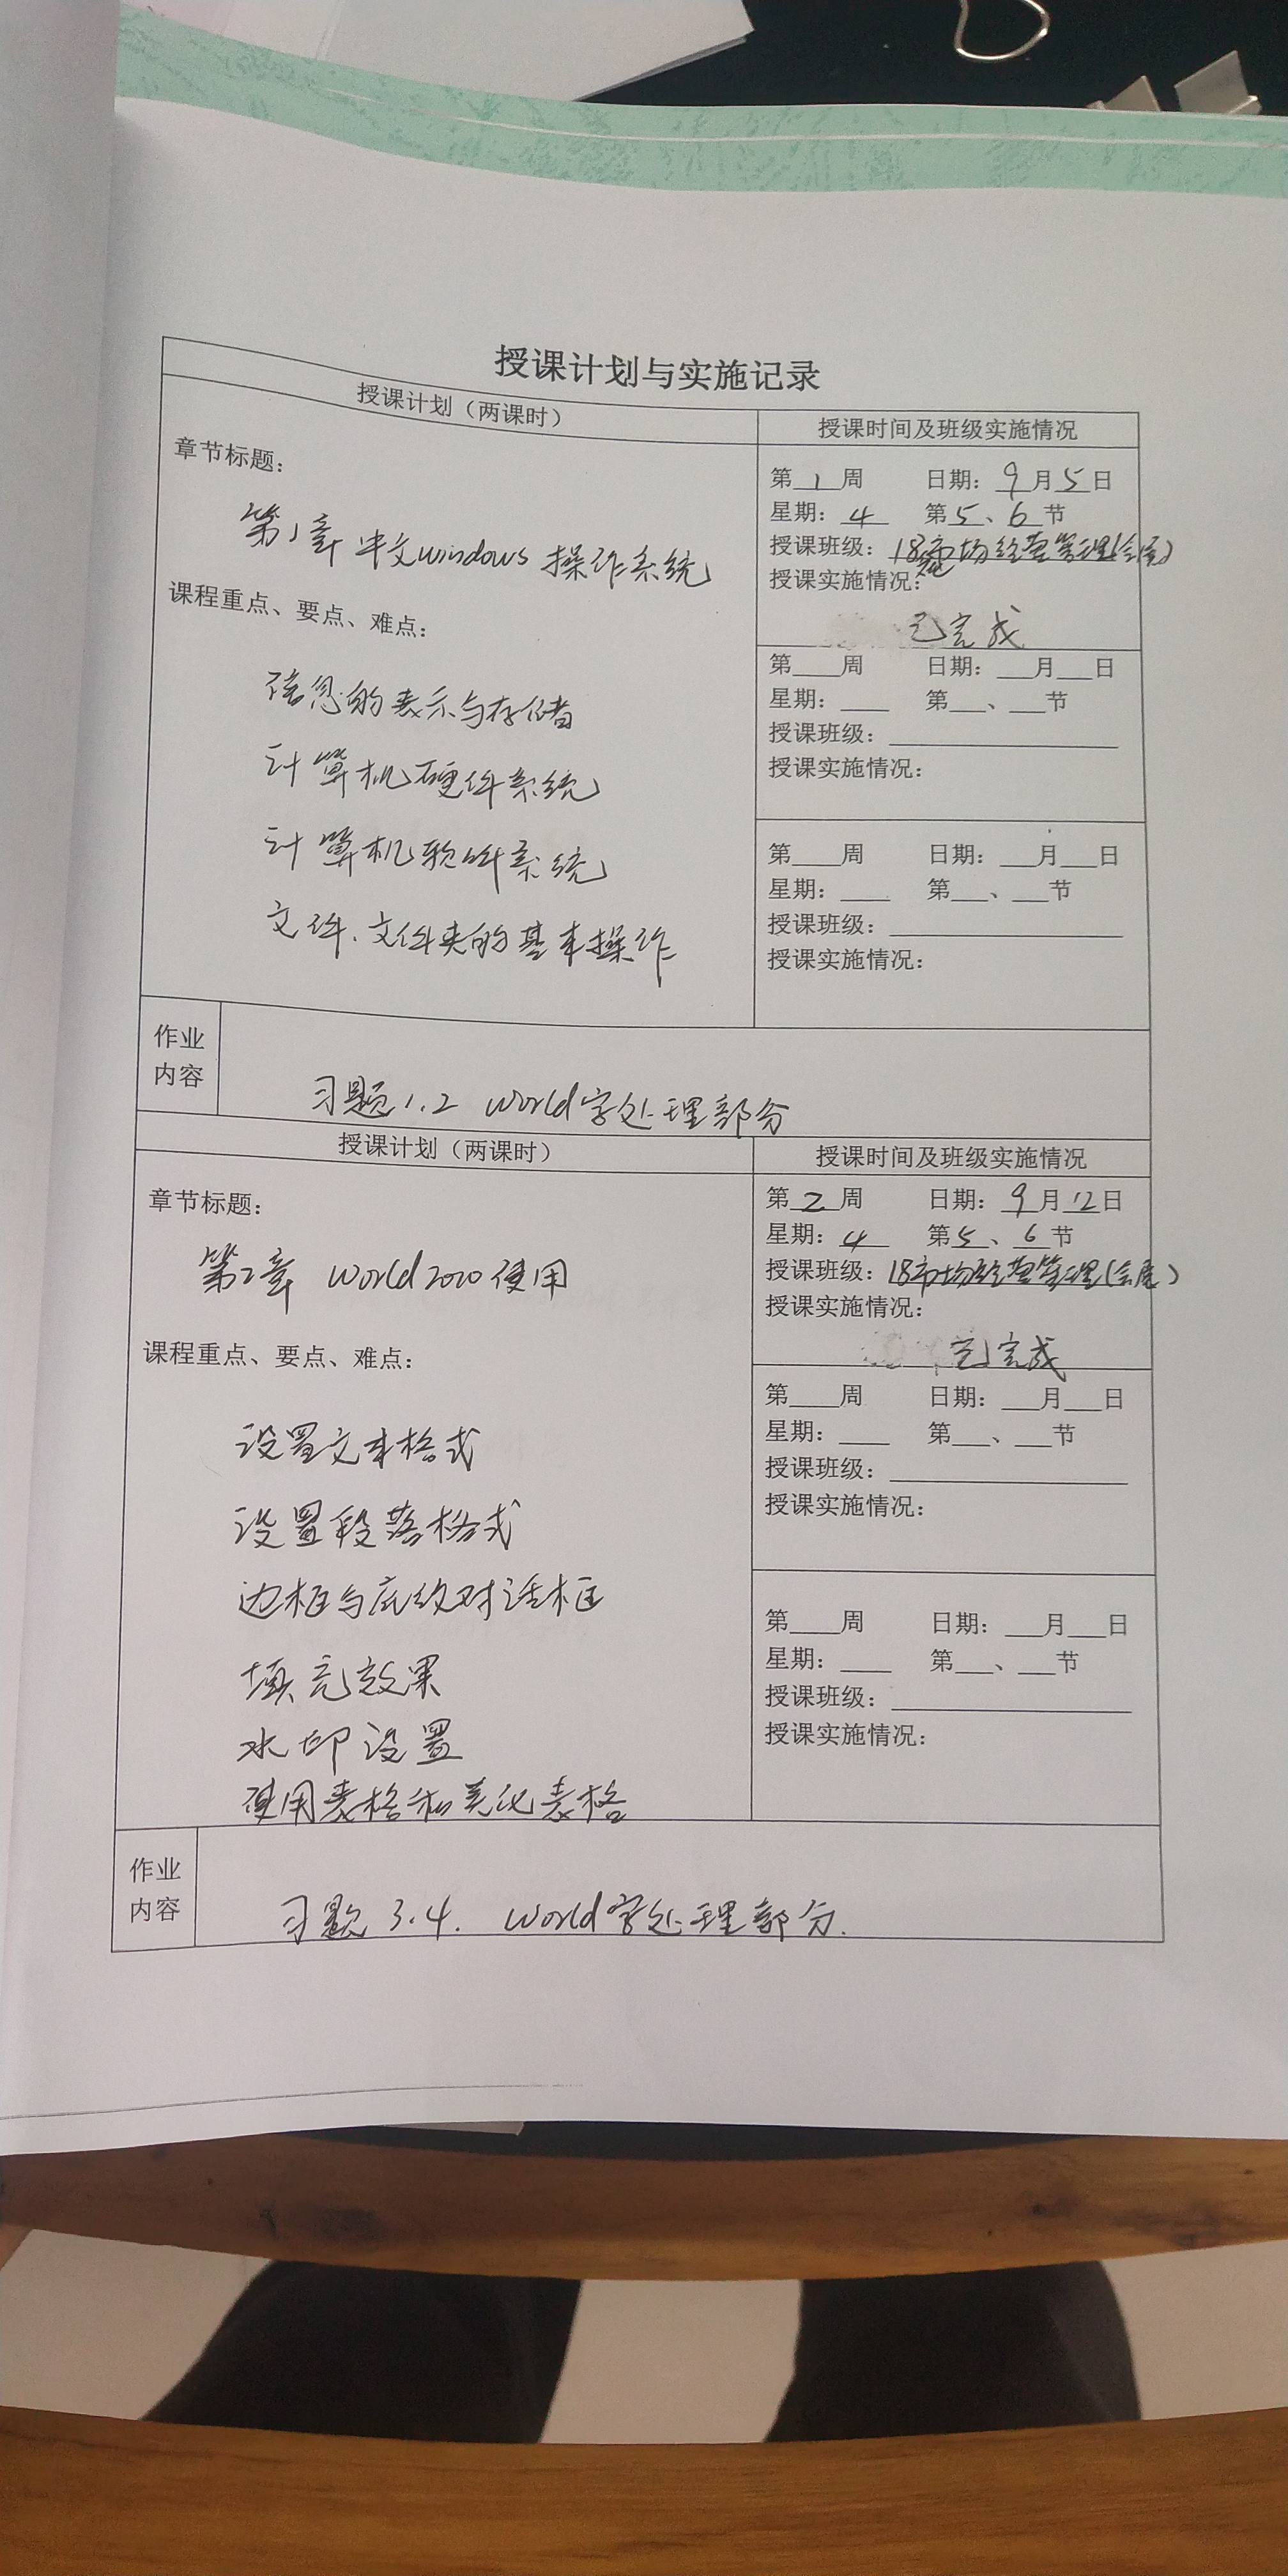 授课计划与实施记录
授课计划（两课时）
授课时间及班级实施情况
章节标题：
第1章 中文windows操作系统
课程重点、要点、难点：
信息的表示与存储
计算机硬件系统
计算机软件系统
文件、文件夹的基本操作
第1周 日期：9月5日
星期：4 第5、6节
授课班级：18市场经营管理(会展)
授课实施情况：
已完成
第___周 日期：___月___日
星期：___ 第___、___节
授课班级：
授课实施情况：
第___周 日期：___月___日
星期：___ 第___、___节
授课班级：
授课实施情况：
作业
内容
习题1.2 World字处理部分
授课计划（两课时）
授课时间及班级实施情况
章节标题：
第2章 World2010使用
课程重点、要点、难点：
设置文本格式
设置段落格式
边框与底纹对话框
填充效果
水印设置
使用表格和美化表格
第2周 日期：9月12日
星期：4 第5、6节
授课班级：18市场经营管理(会展)
授课实施情况：
已完成
第___周 日期：___月___日
星期：___ 第___、___节
授课班级：
授课实施情况：
第___周 日期：___月___日
星期：___ 第___、___节
授课班级：
授课实施情况：
作业
内容
习题 3.4. World字处理部分.